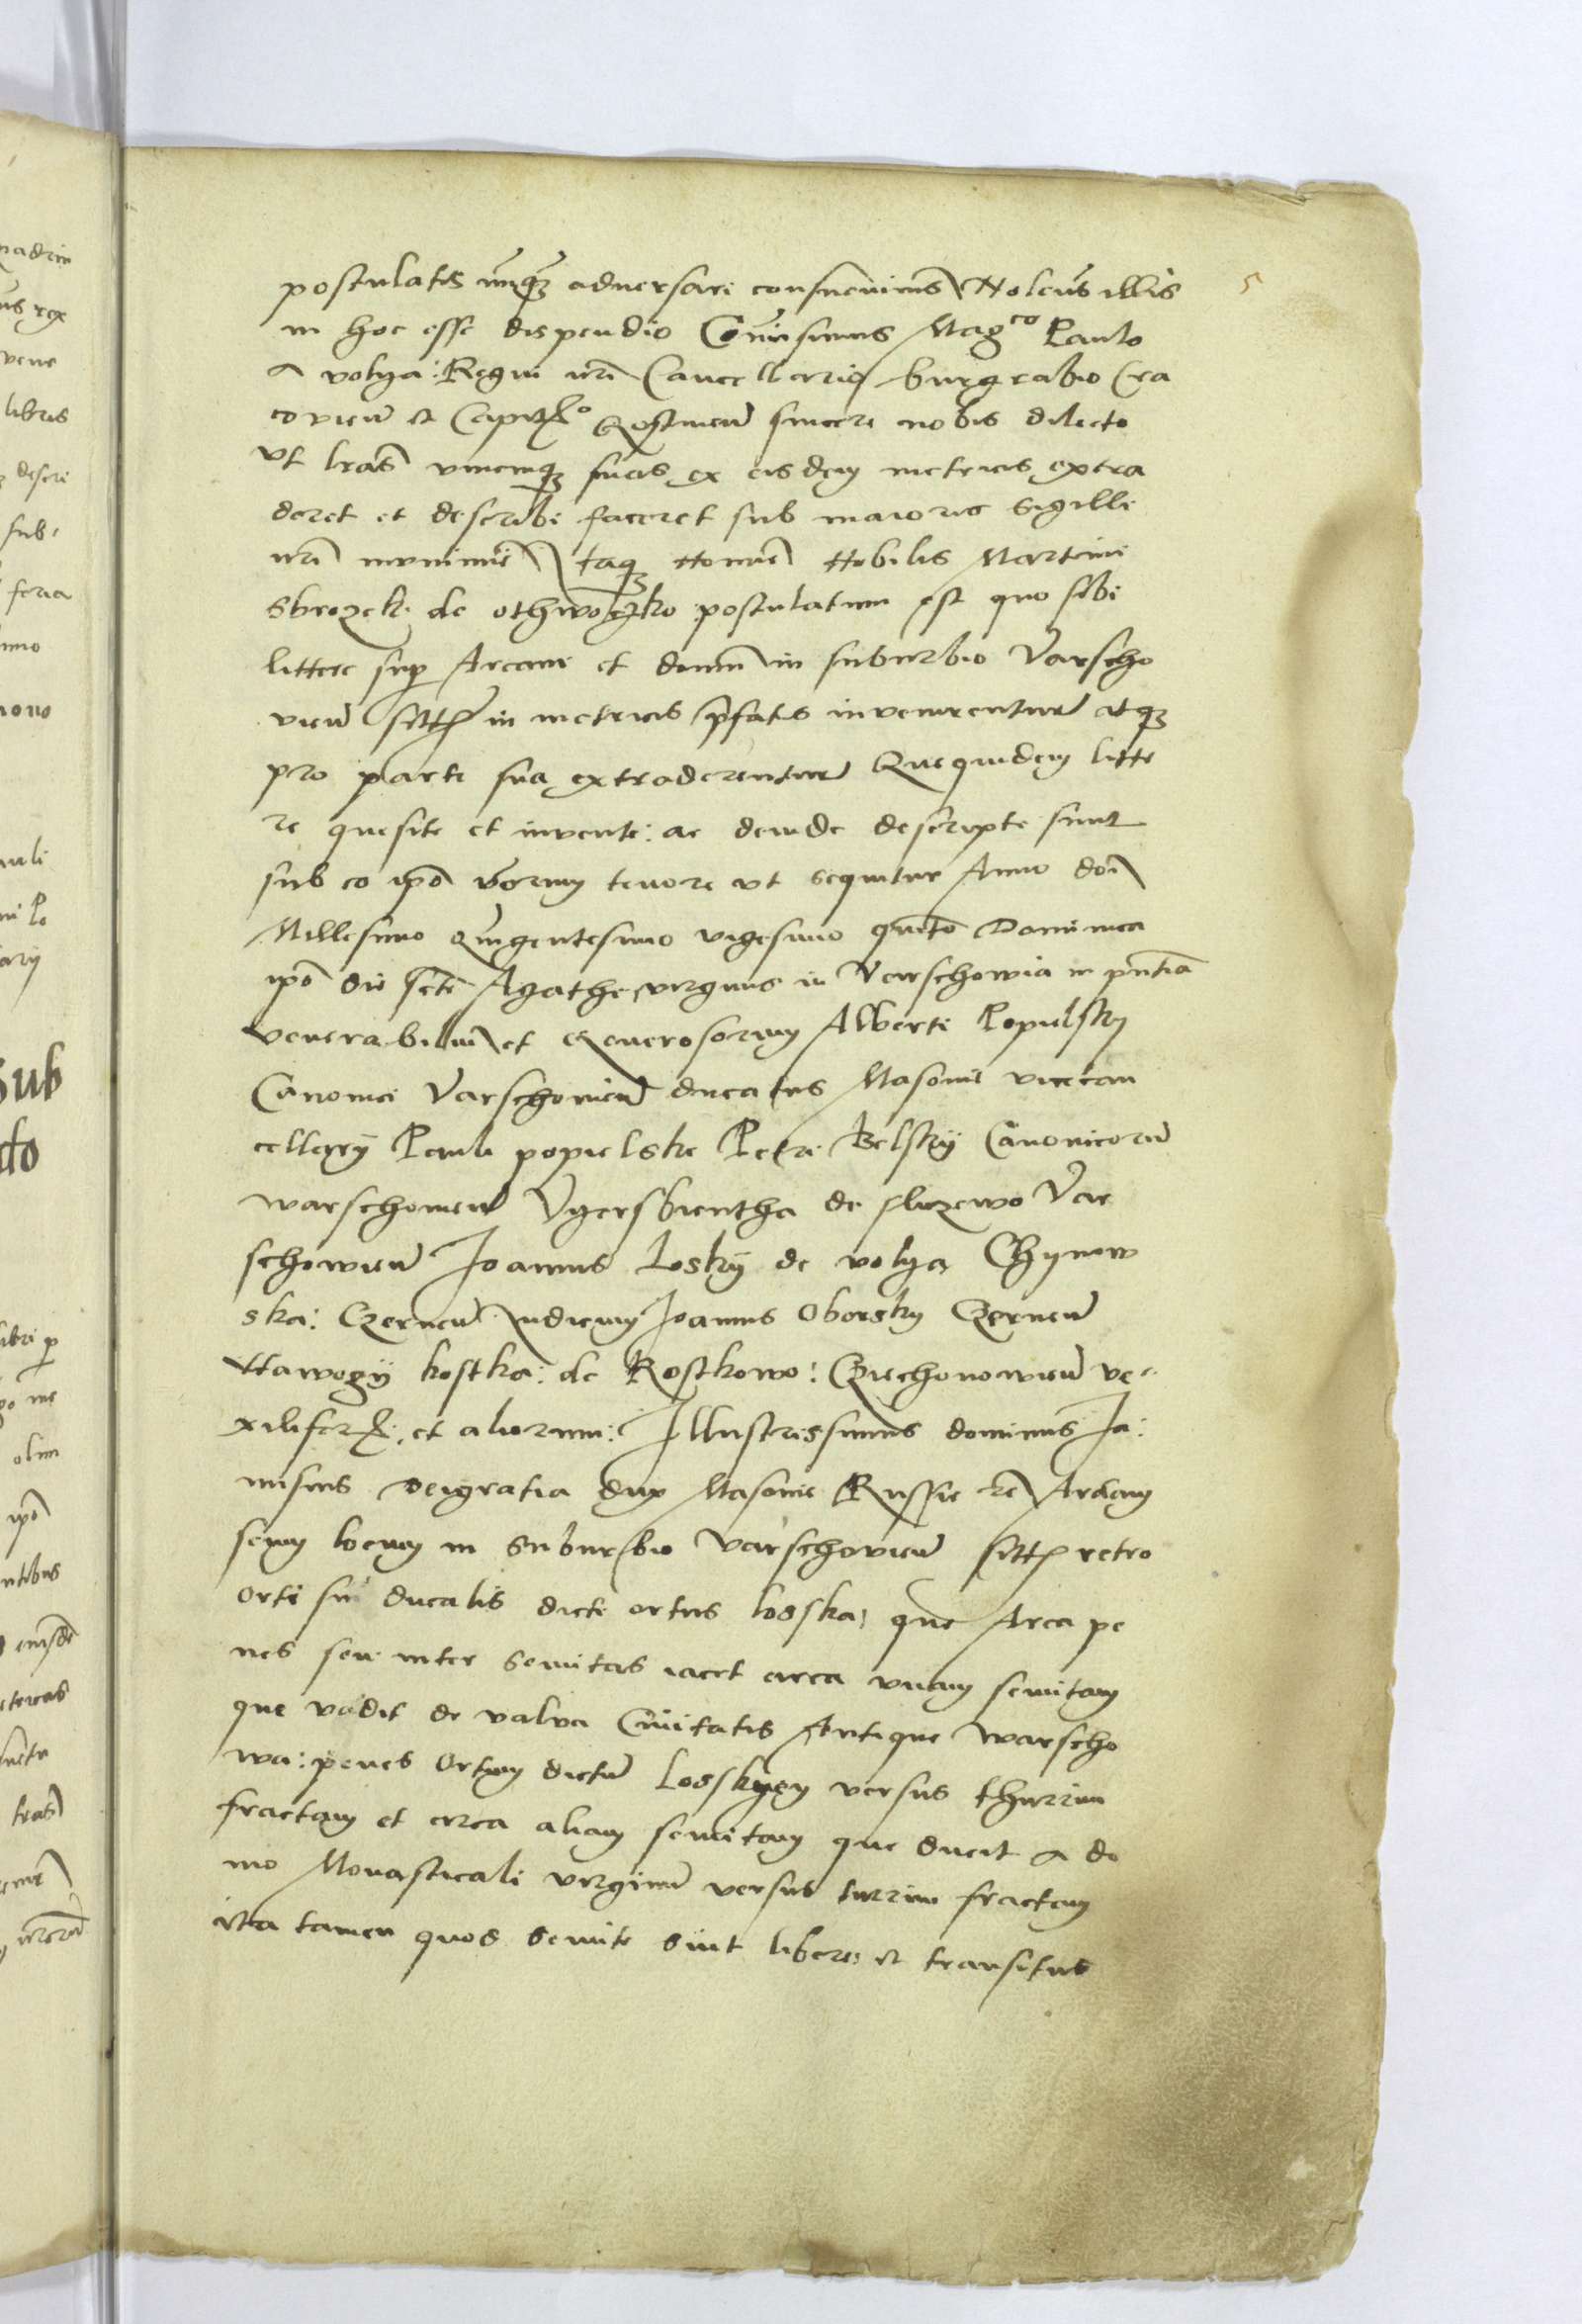 5
postulatis unqȝ adversari consuevimus Nolens illis
in hoc esse dispendio Comisimus Mag^co Paulo
a volya: Regni nri Cancellario burgrabio Cra
covien et Capit^o Gostinen sincere nobis dilecto
ut lras unicuiqȝ suas ex eisdem metricis extra
deret et describi faceret sub maioris sigilli
nri munimine Itaqȝ nomine Nobilis Martini
Sbrozek de othwoczko postulatum est quo sibi
littere sup Aream et domum in suburbio Varscho
vien in metricis pfatis invenirentur atqȝ
pro parte sua extraderentur Que quidem litte
re quesite et invente: ac deinde descripte sunt
sub eo ipo verborum tenore ut sequitur Anno doi
Millesimo quingentesimo vigesimo quinto Dominica
ipo die scte Agathe virginis in Varschowia in pntia
venerabilium et Generosorum Alberti Popielsky
Canonici Varschovien ducatus Masovie vicecan
cellarij Pauli popielski Petri Belskij Canonicorum
warschovien Vgersbientha de sluzewo Var
schowien Joannis Loskij de volya Chynow
ska: Czernen Judicum Joannis Oborsky Czernen
Nawogij kostka: de Rostkowo: Cziechonowien ve
xiliferȝ: et aliorum: Illustrissimus dominus Ja:
nusius deigratia dux Masovie Russie zc Aream
seu locum in suburbio Varschovien retro
orti sui ducalis dicti ortus losska: que Area pe
nes seu inter semitas iacet circa unam semitam
que vadit de valva Civitatis Antique warscho
wa: penes ortum dictum Losskyey versus thurrim
fractam et circa aliam semitam que ducit a do
mo Monasticali virginum versus turrim fractam
ita tamen quod semite sint libere et transitus